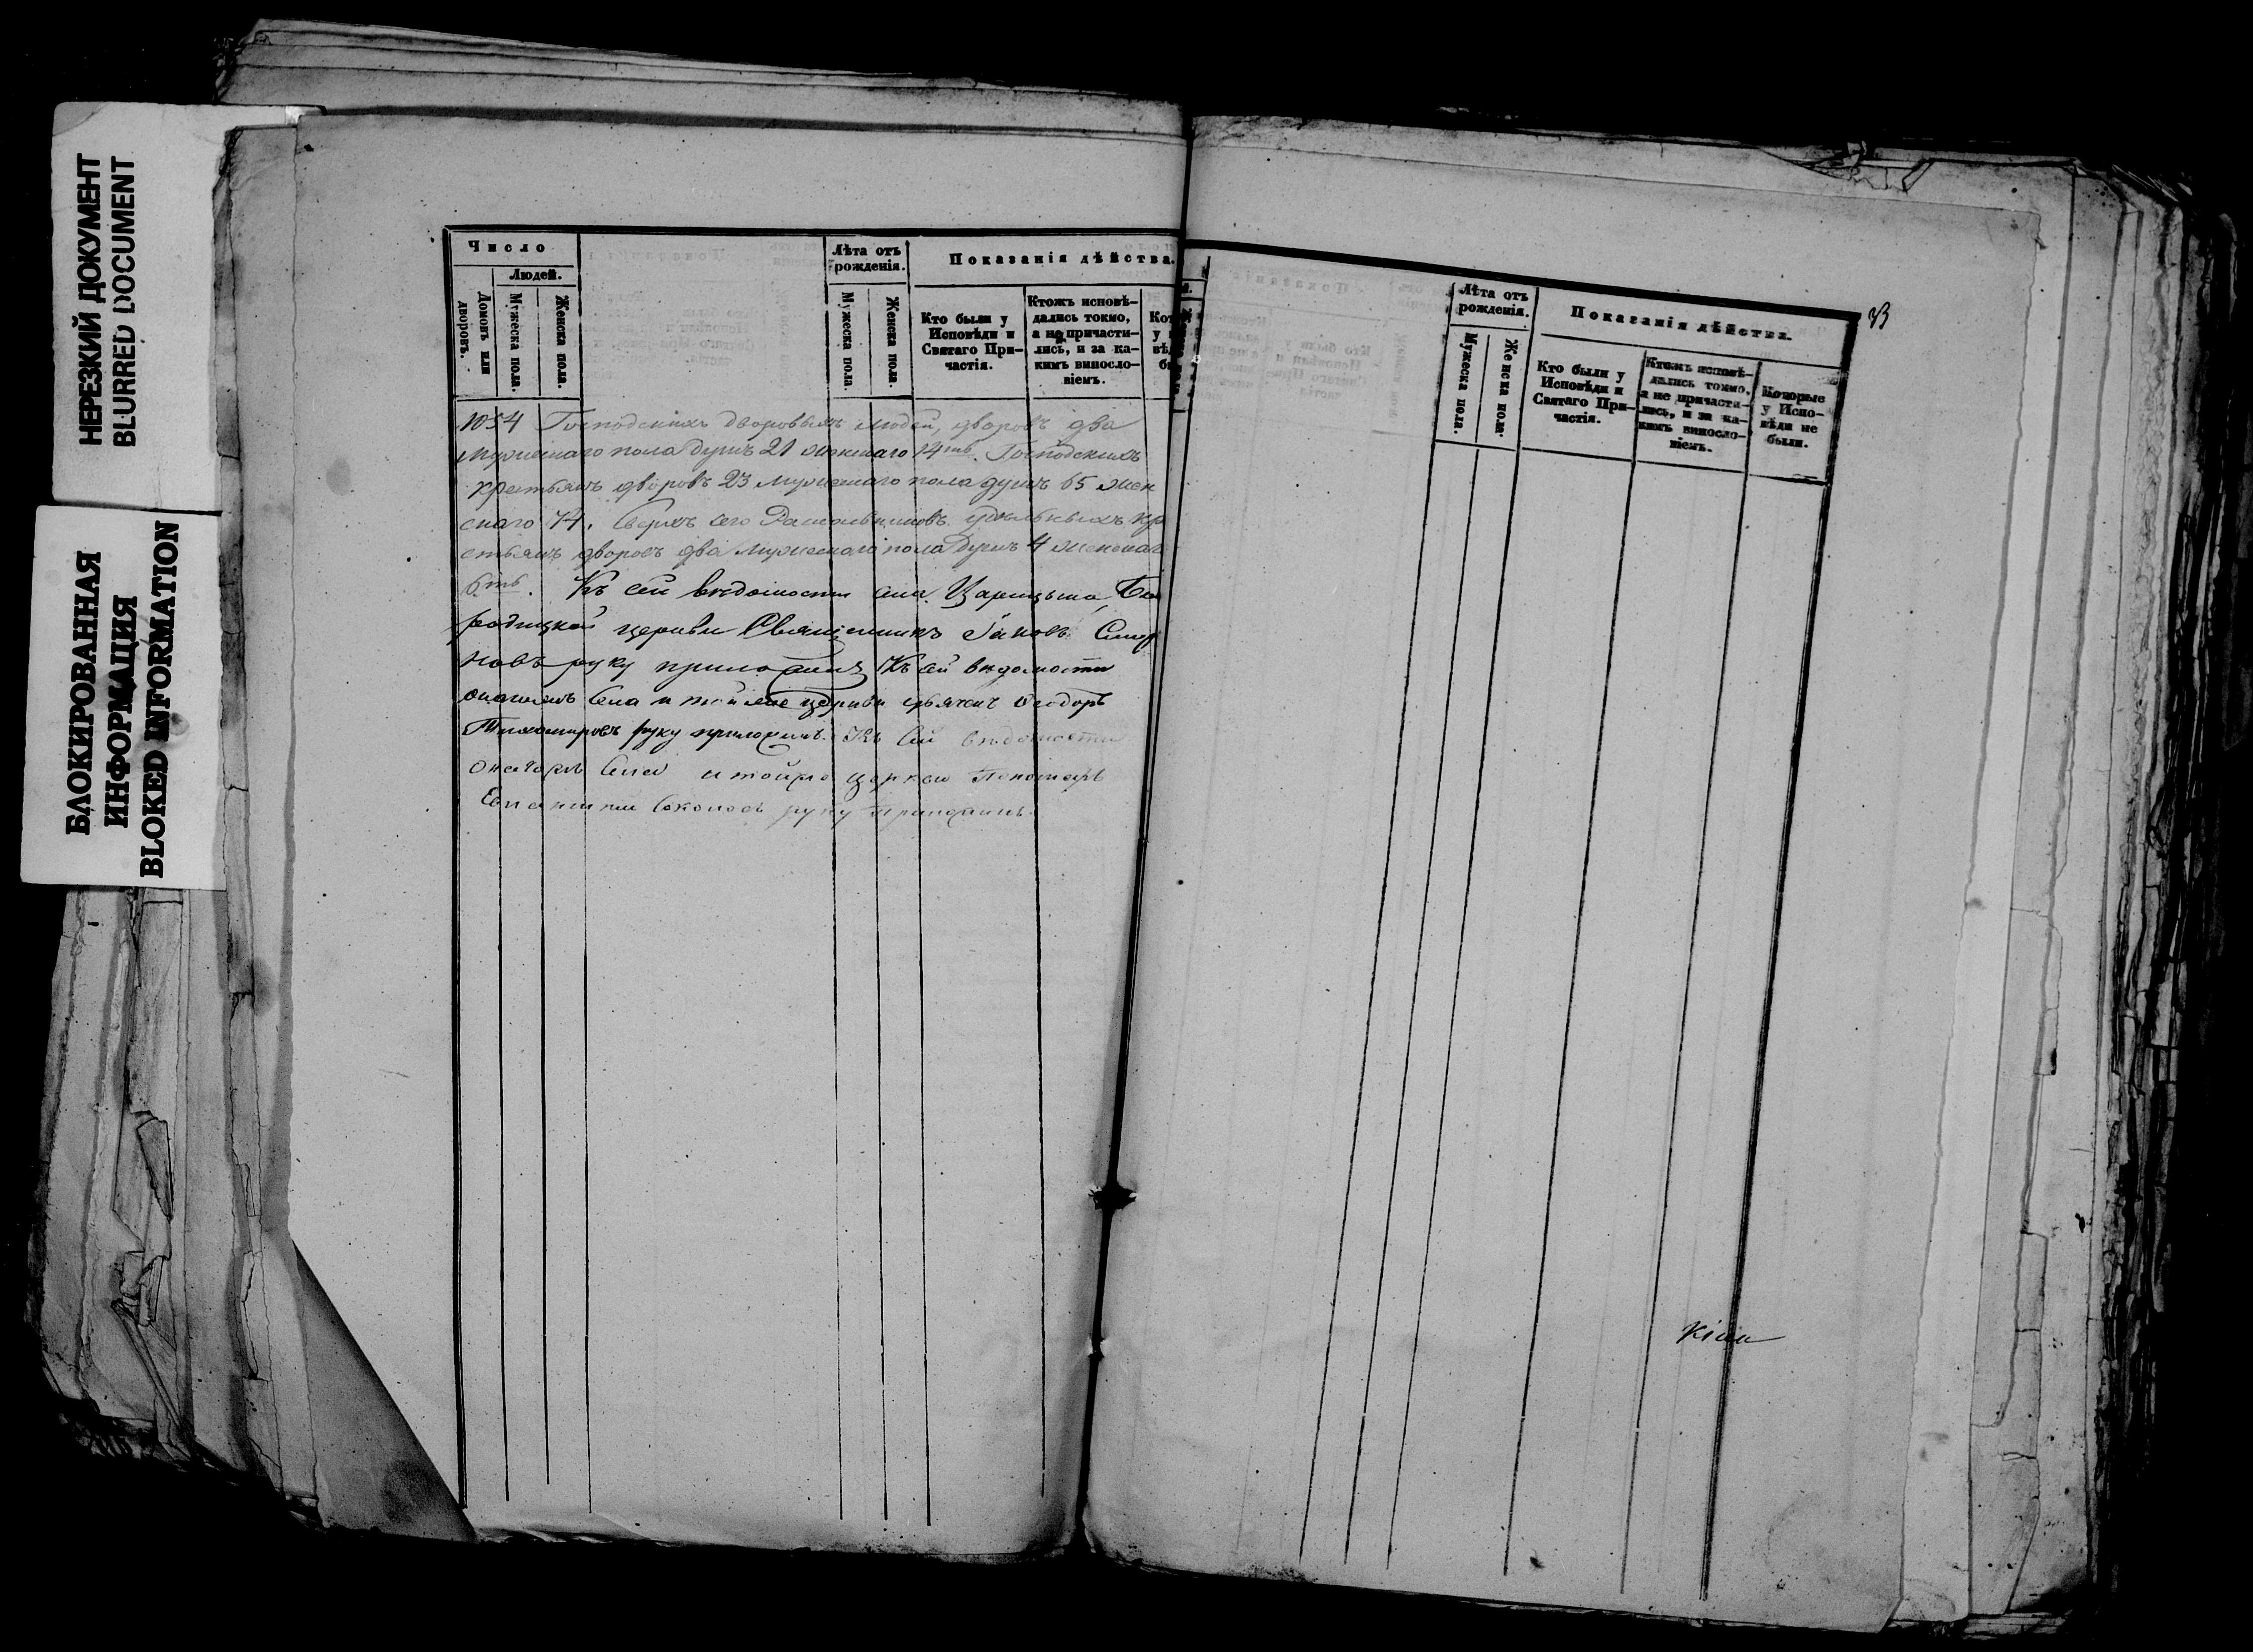 НЕРЕЗКИЙ ДОКУМЕНТ
BLURRED DOCUMENT
БЛОКИРОВАННАЯ
ИНФОРМАЦИЯ
BLOKED INFORMATION
Число
Людей.
Домовъ или дворовъ.
Мужеска пола.
Женска пола.
Лѣта отъ
рожденія.
Мужеска пола.
Женска пола.
Показанія дѣйства.
Кто были у
Исповѣди и
Святаго При-
частія.
Ктожъ исповѣ-
дались токмо,
а не причасти-
лись, и за ка-
кимъ винослo-
віемъ.
1054 Господскихъ дворовыхъ людей, дворовъ два
Мужескаго пола душъ 21 женскаго 14ть. Господскихъ
крестьянъ дворовъ 23 Мужескаго пола душъ 65 жен
скаго 74. Сверхъ сего удѣльныхъ кр
стьянъ дворовъ два Мужескаго пола душъ 4 женскаг
6ть. Къ сей вѣдомости села Царицына, Бого
родицкой церкви Священникъ Іаковъ Смир
новъ руку приложилъ Къ сей вѣдомости
означен села и тойже церкви Ѳеодоръ
Тихомировъ руку приложилъ. Къ сей вѣдомости
Села и тойже церкви Пономарь
Соколовъ руку приложилъ.
Лѣта отъ
рожденія.
Мужеска пола.
Женска пола.
Показанія дѣйства.
Кто были у
Исповѣди и
Святаго При-
частія.
Ктожъ исповѣ-
дались токмо,
а не причасти-
лись, и за ка-
кимъ винослo-
віемъ.
Которые
у Испо-
вѣди не
были.